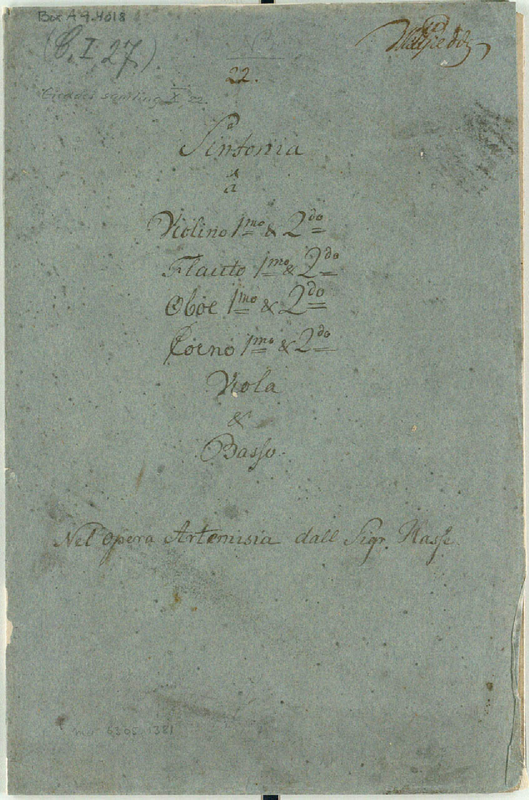 Box A 9.4018
(C.I,27)
22.
Sinfonia
à
Violino 1mo & 2do
Flauto 1mo & 2do
Oboe 1mo & 2do
Corno 1mo & 2do
Viola
&
Basso.
Nel opera Artemisia dall Sigr. Hasse.